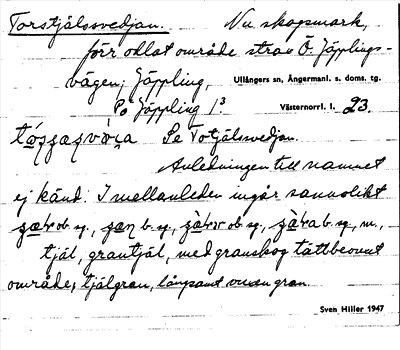 Torstjälsvedjan. Nu skogsmark,
förr odlat område strax Ö. Jäpplings-
vägen; Jäppling, Ullångers sn, Ångermanl. s. doms. tg.
På Jäppling 1.³ Västernorrl. l. 23.
Se Totjälsvedjan.
Avledningen till namnet
ej känd. I mellanleden ingår sannolikt
ob sg., b. sg., ob sg., b. sg., m.,
tjäl, grantjäl, med granskog tättbevuxet
område, tjälgran, långsamt vuxen gran.
Sven Hiller 1947